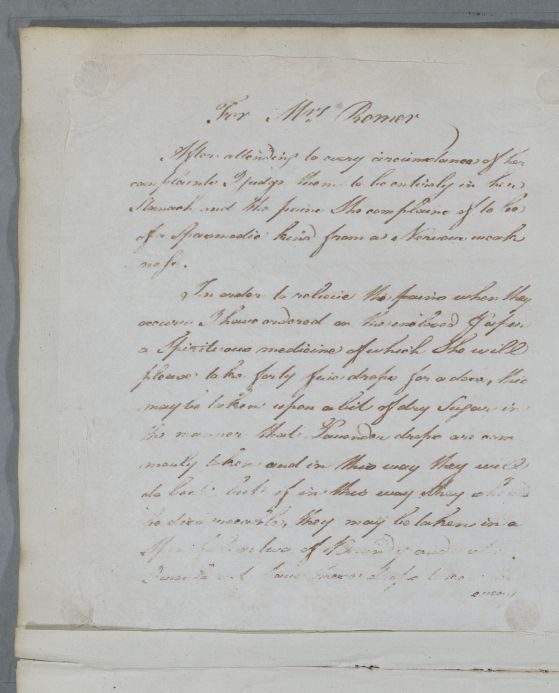 For Mrs Romer
After attending to every circumstance of her
complaints I judge them to be entirely in her
Stomach and the pains She complains of to be
of a Spasmodic kind from a Nervous weak
ness.
In order to relieve the pains when they
occurr I have ordered on the inclosed paper
a Spirituous medicine of which She will
please to take forty five drops for a dose, this
may be taken upon a bit of dry Sugar in
the manner that Lavender drops are com
monly taken and in this way they will
do best but if in this way they should
be disagreeable, they may be taken in a
Spoonfull or two of Brandy and water
I would not have these drops